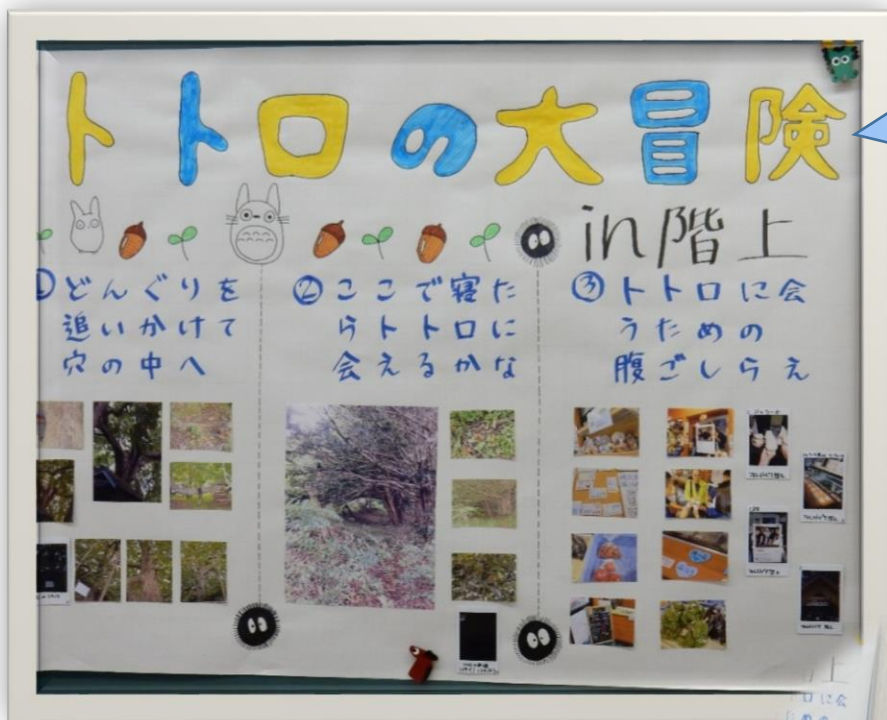 トトロの大冒険
in階上
①どんぐりを
追いかけて
穴の中へ
②ここで寝た
らトトロに
会えるかな
③トトロに会
うための
腹ごしらえ
上
ロに会